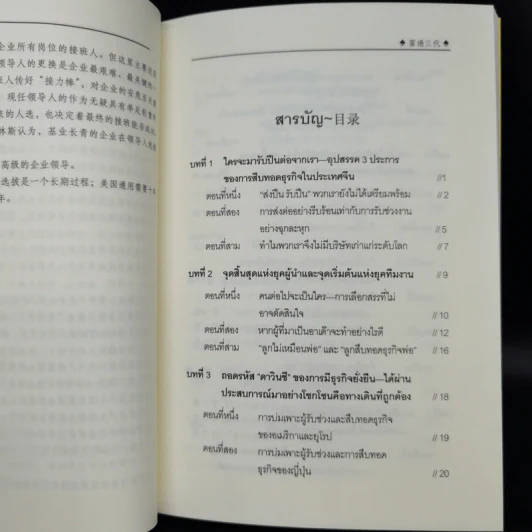 企业所有岗位的接班人。但这里主要
领导人的更换是企业最艰难、最关键的
人传好“接力棒”，对企业的安危至关重
现任领导人的作为无疑具有举足轻重
的人选，也决定着最终的接班能否成功
林斯认为，基业长青的企业在领导人选
高级的企业领导。
选拔是一个长期过程；美国通用需要十
年。
♠ 富过三代 ♠
สารบัญ~目录
บทที่ 1 ใครจะมารับปืนต่อจากเรา—อุปสรรค 3 ประการ
ของการสืบทอดธุรกิจในประเทศจีน //1
ตอนที่หนึ่ง "ส่งปืน รับปืน" พวกเรายังไม่ได้เตรียมพร้อม // 2
ตอนที่สอง การส่งต่ออย่างรีบร้อนเท่ากับการรับช่วงงาน
อย่างฉุกละหุก // 5
ตอนที่สาม ทำไมพวกเราจึงไม่มีบริษัทเก่าแก่ระดับโลก // 7
บทที่ 2 จุดสิ้นสุดแห่งยุคผู้นำและจุดเริ่มต้นแห่งยุคทีมงาน // 9
ตอนที่หนึ่ง คนต่อไปจะเป็นใคร—การเลือกสรรที่ไม่
อาจตัดสินใจ // 10
ตอนที่สอง หากผู้ที่มาเป็นอาเต๊าจะทำอย่างไรดี // 12
ตอนที่สาม "ลูกไม่เหมือนพ่อ" และ "ลูกสืบทอดธุรกิจพ่อ" // 16
บทที่ 3 ถอดรหัส "ดาวินชี" ของการมีธุรกิจยั่งยืน—ได้ผ่าน
ประสบการณ์มาอย่างโชกโชนคือทางเดินที่ถูกต้อง // 18
ตอนที่หนึ่ง การบ่มเพาะผู้รับช่วงและสืบทอดธุรกิจ
ของอเมริกาและยุโรป // 19
ตอนที่สอง การบ่มเพาะผู้รับช่วงและการสืบทอด
ธุรกิจของญี่ปุ่น // 20